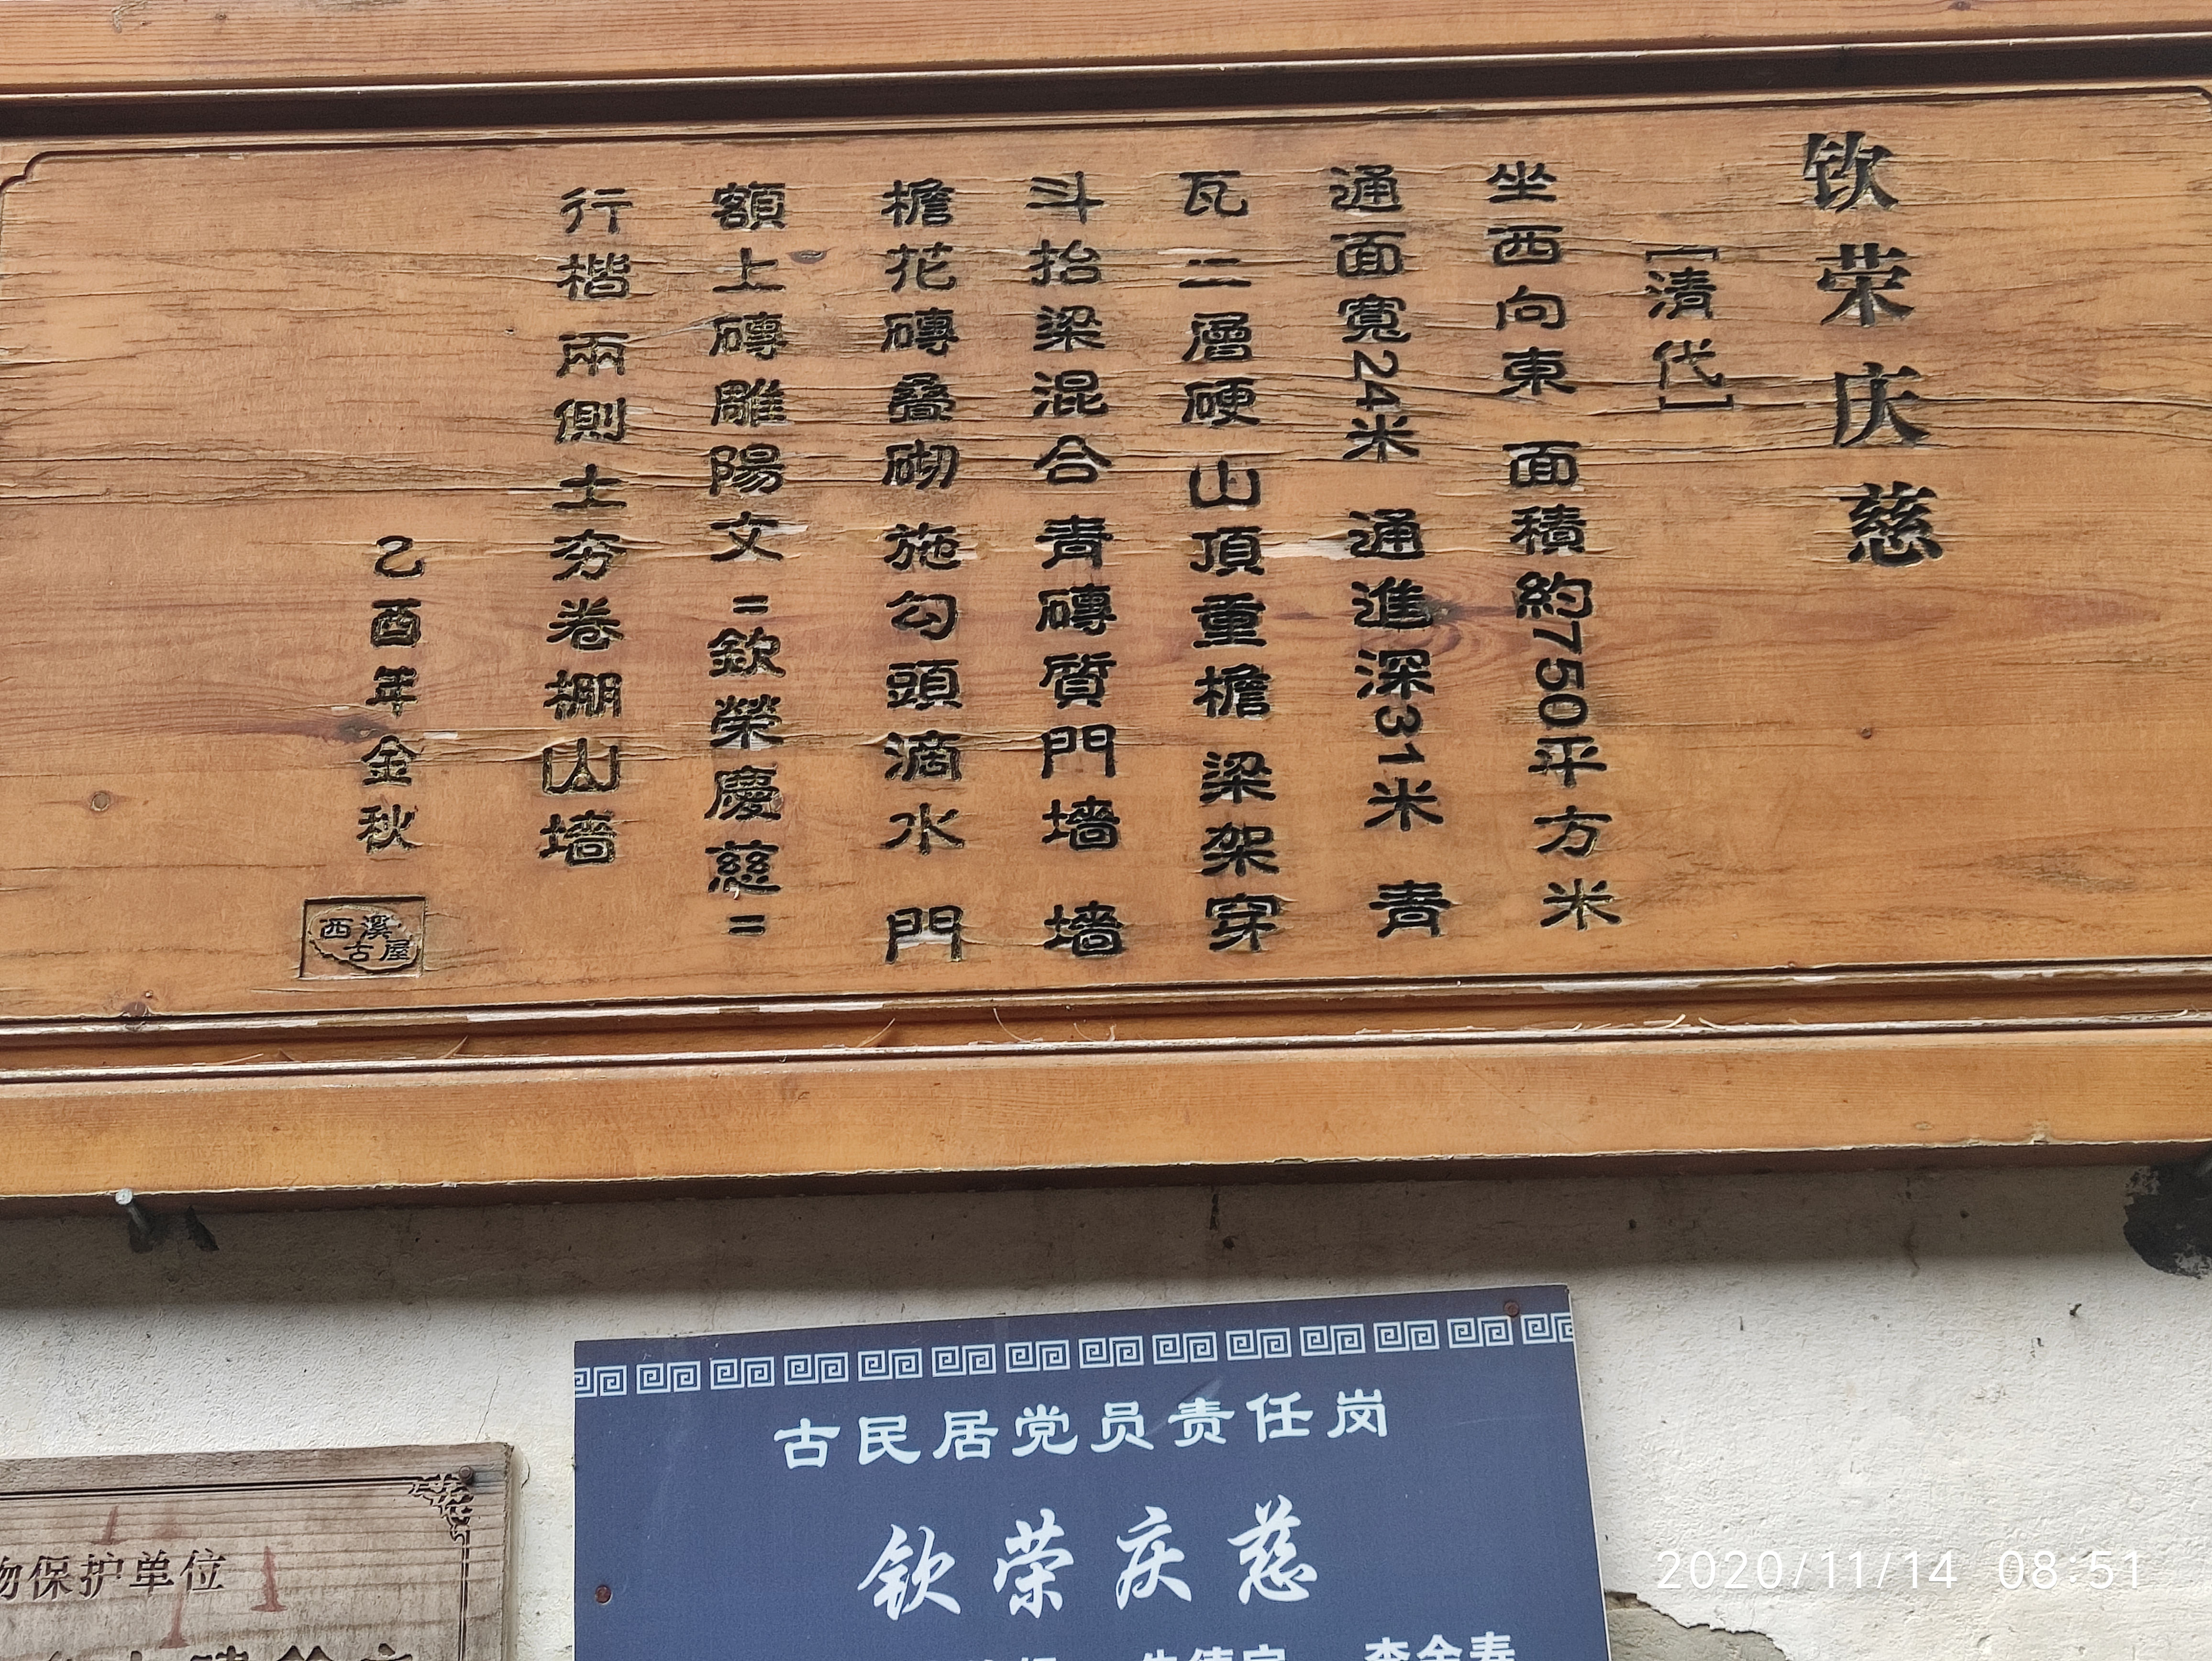 钦荣庆慈
[清代]
坐西向東 面積約750平方米
通面寬24米 通進深31米 青
瓦二層硬山頂重檐 梁架穿
斗抬梁混合 青磚質門墙 墙
檐花磚叠砌 施勾頭滴水 門
額上磚雕陽文=欽榮慶慈=
行楷 兩側土夯卷棚山墙
乙酉年金秋
西溪
古屋
古民居党员责任岗
钦荣庆慈
物保护单位
2020/11/14 08:51